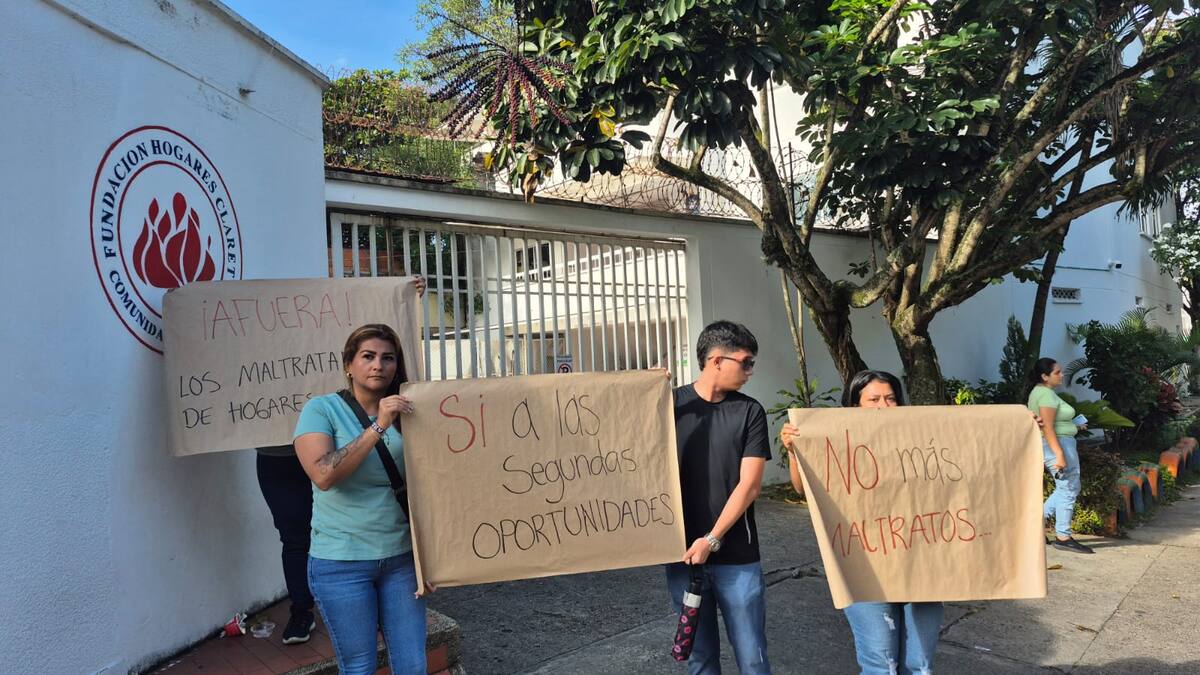 FUNDACION HOGARES CLARET
¡AFUERA!
LOS MALTRATA
DE HOGARES
Si a las
Segundas
OPORTUNIDADES
No más
MALTRATOS...